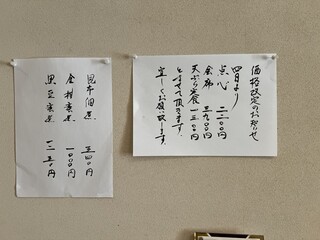 価格改定のお知らせ
四月より
点心 二二〇〇円
会席 三九〇〇円
天ぷら定食 一三〇〇円
とさせて頂きます。
宜しくお願い致します。
昆布佃煮 五四〇円
金柑蜜煮 一〇〇〇円
黒豆蜜煮